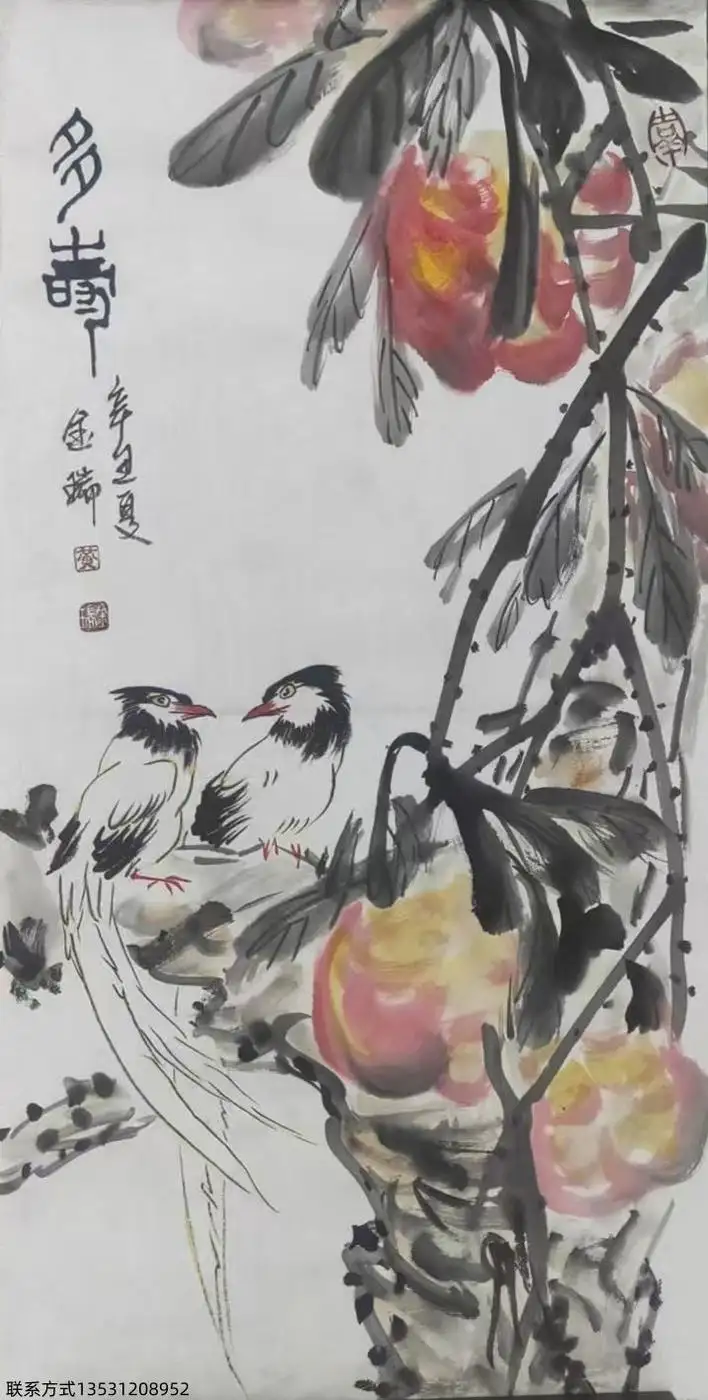 多壽
辛丑夏
金瑞
联系方式13531208952